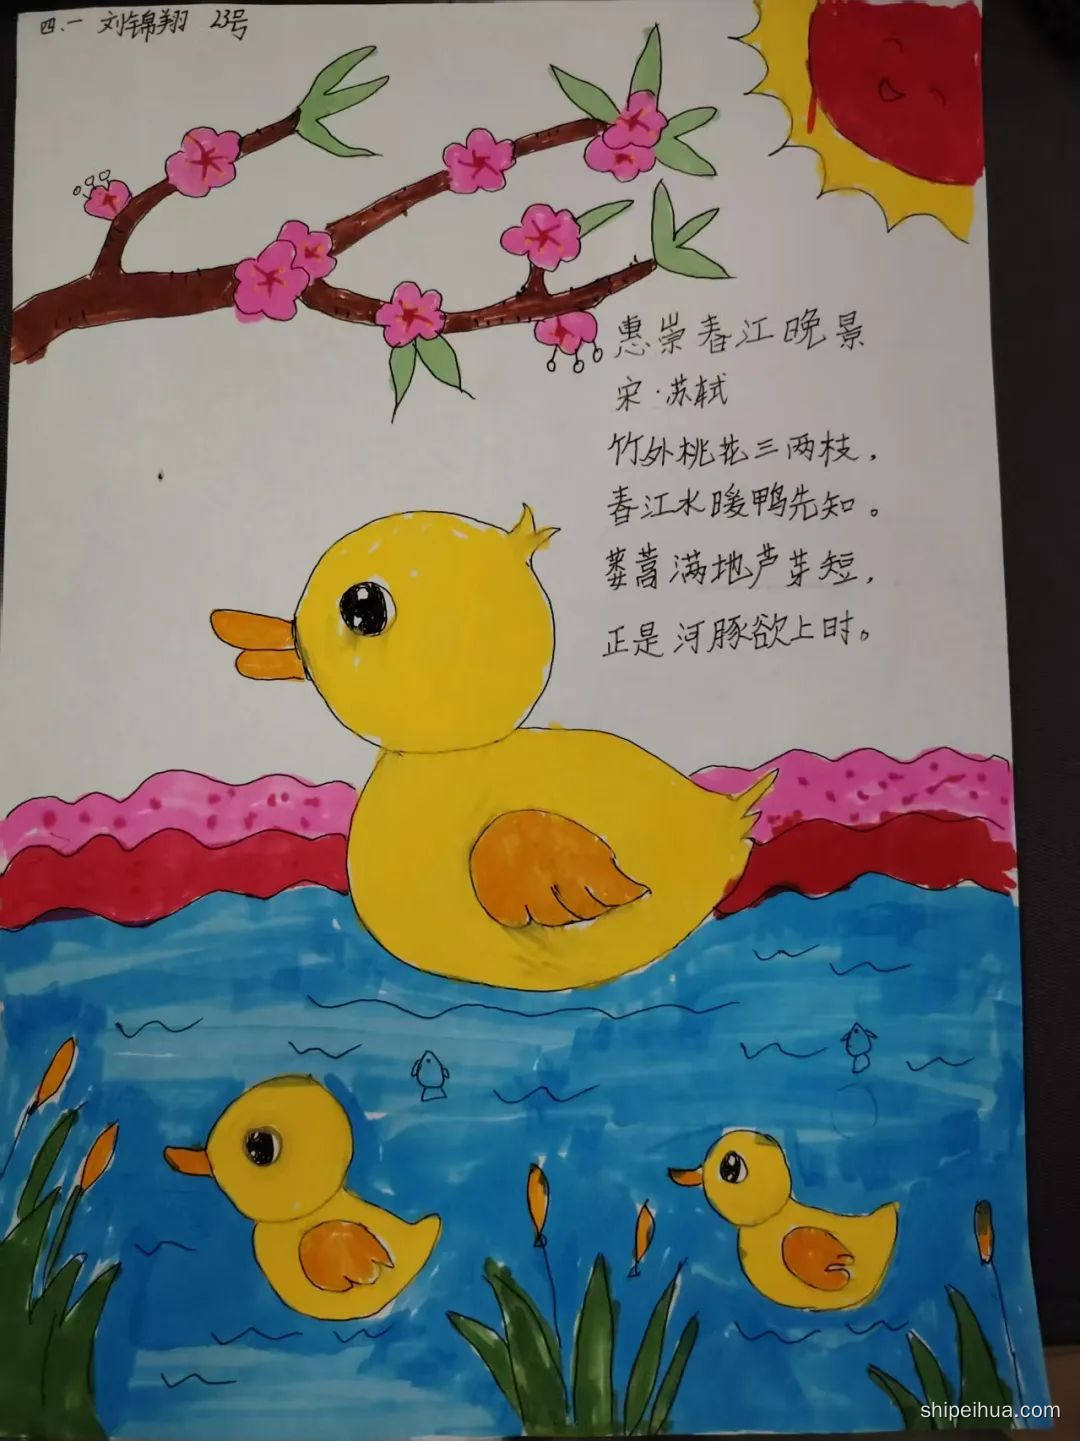 四.一 刘锦翔 23号
惠崇春江晚景
宋·苏轼
竹外桃花三两枝，
春江水暖鸭先知。
蒌蒿满地芦芽短，
正是河豚欲上时。
shipeihua.com